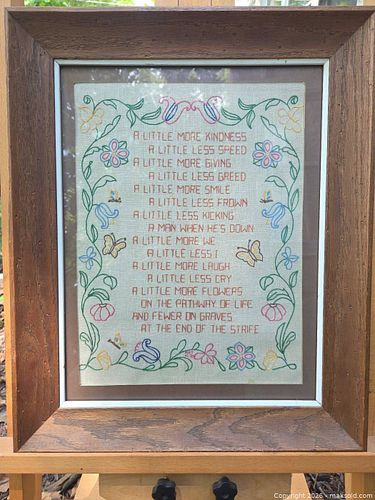 A LITTLE MORE KINDNESS
A LITTLE LESS SPEED
A LITTLE MORE GIVING
A LITTLE LESS GREED
A LITTLE MORE SMILE
A LITTLE LESS FROWN
A LITTLE LESS KICKING
A MAN WHEN HE'S DOWN
A LITTLE MORE WE
A LITTLE LESS I
A LITTLE MORE LAUGH
A LITTLE LESS CRY
A LITTLE MORE FLOWERS
ON THE PATHWAY OF LIFE
AND FEWER ON GRAVES
AT THE END OF THE STRIFE
Copyright 2026 - maxsold.com